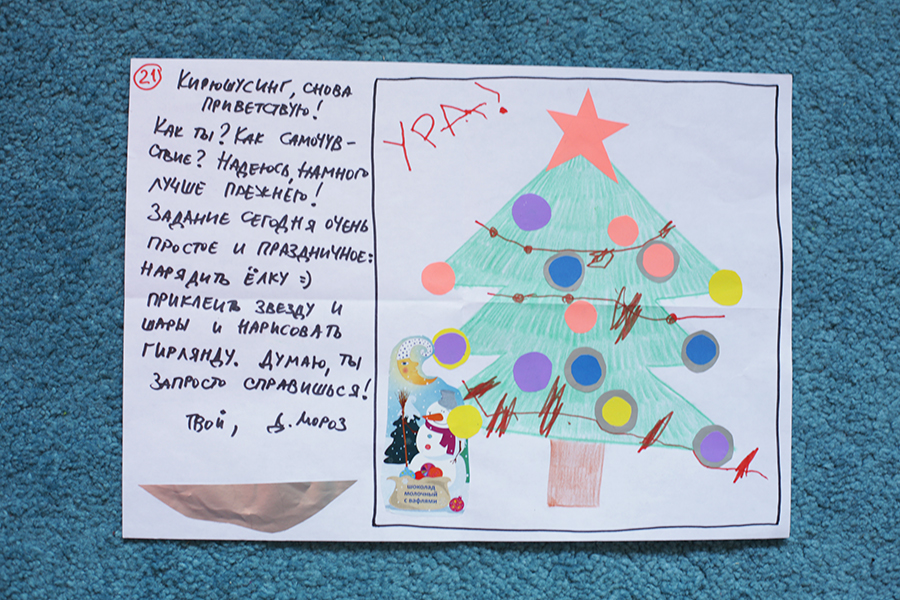 21
Кирюшусинг, снова
приветствую!
Как ты? Как самочув-
ствие? Надеюсь, намного
лучше прежнего!
Задание сегодня очень
простое и праздничное:
нарядить ёлку =)
приклеить звезду и
шары и нарисовать
гирлянду. Думаю, ты
запросто справишься!
Твой, Д. Мороз
УРА!
шоколад
молочный
с вафлями